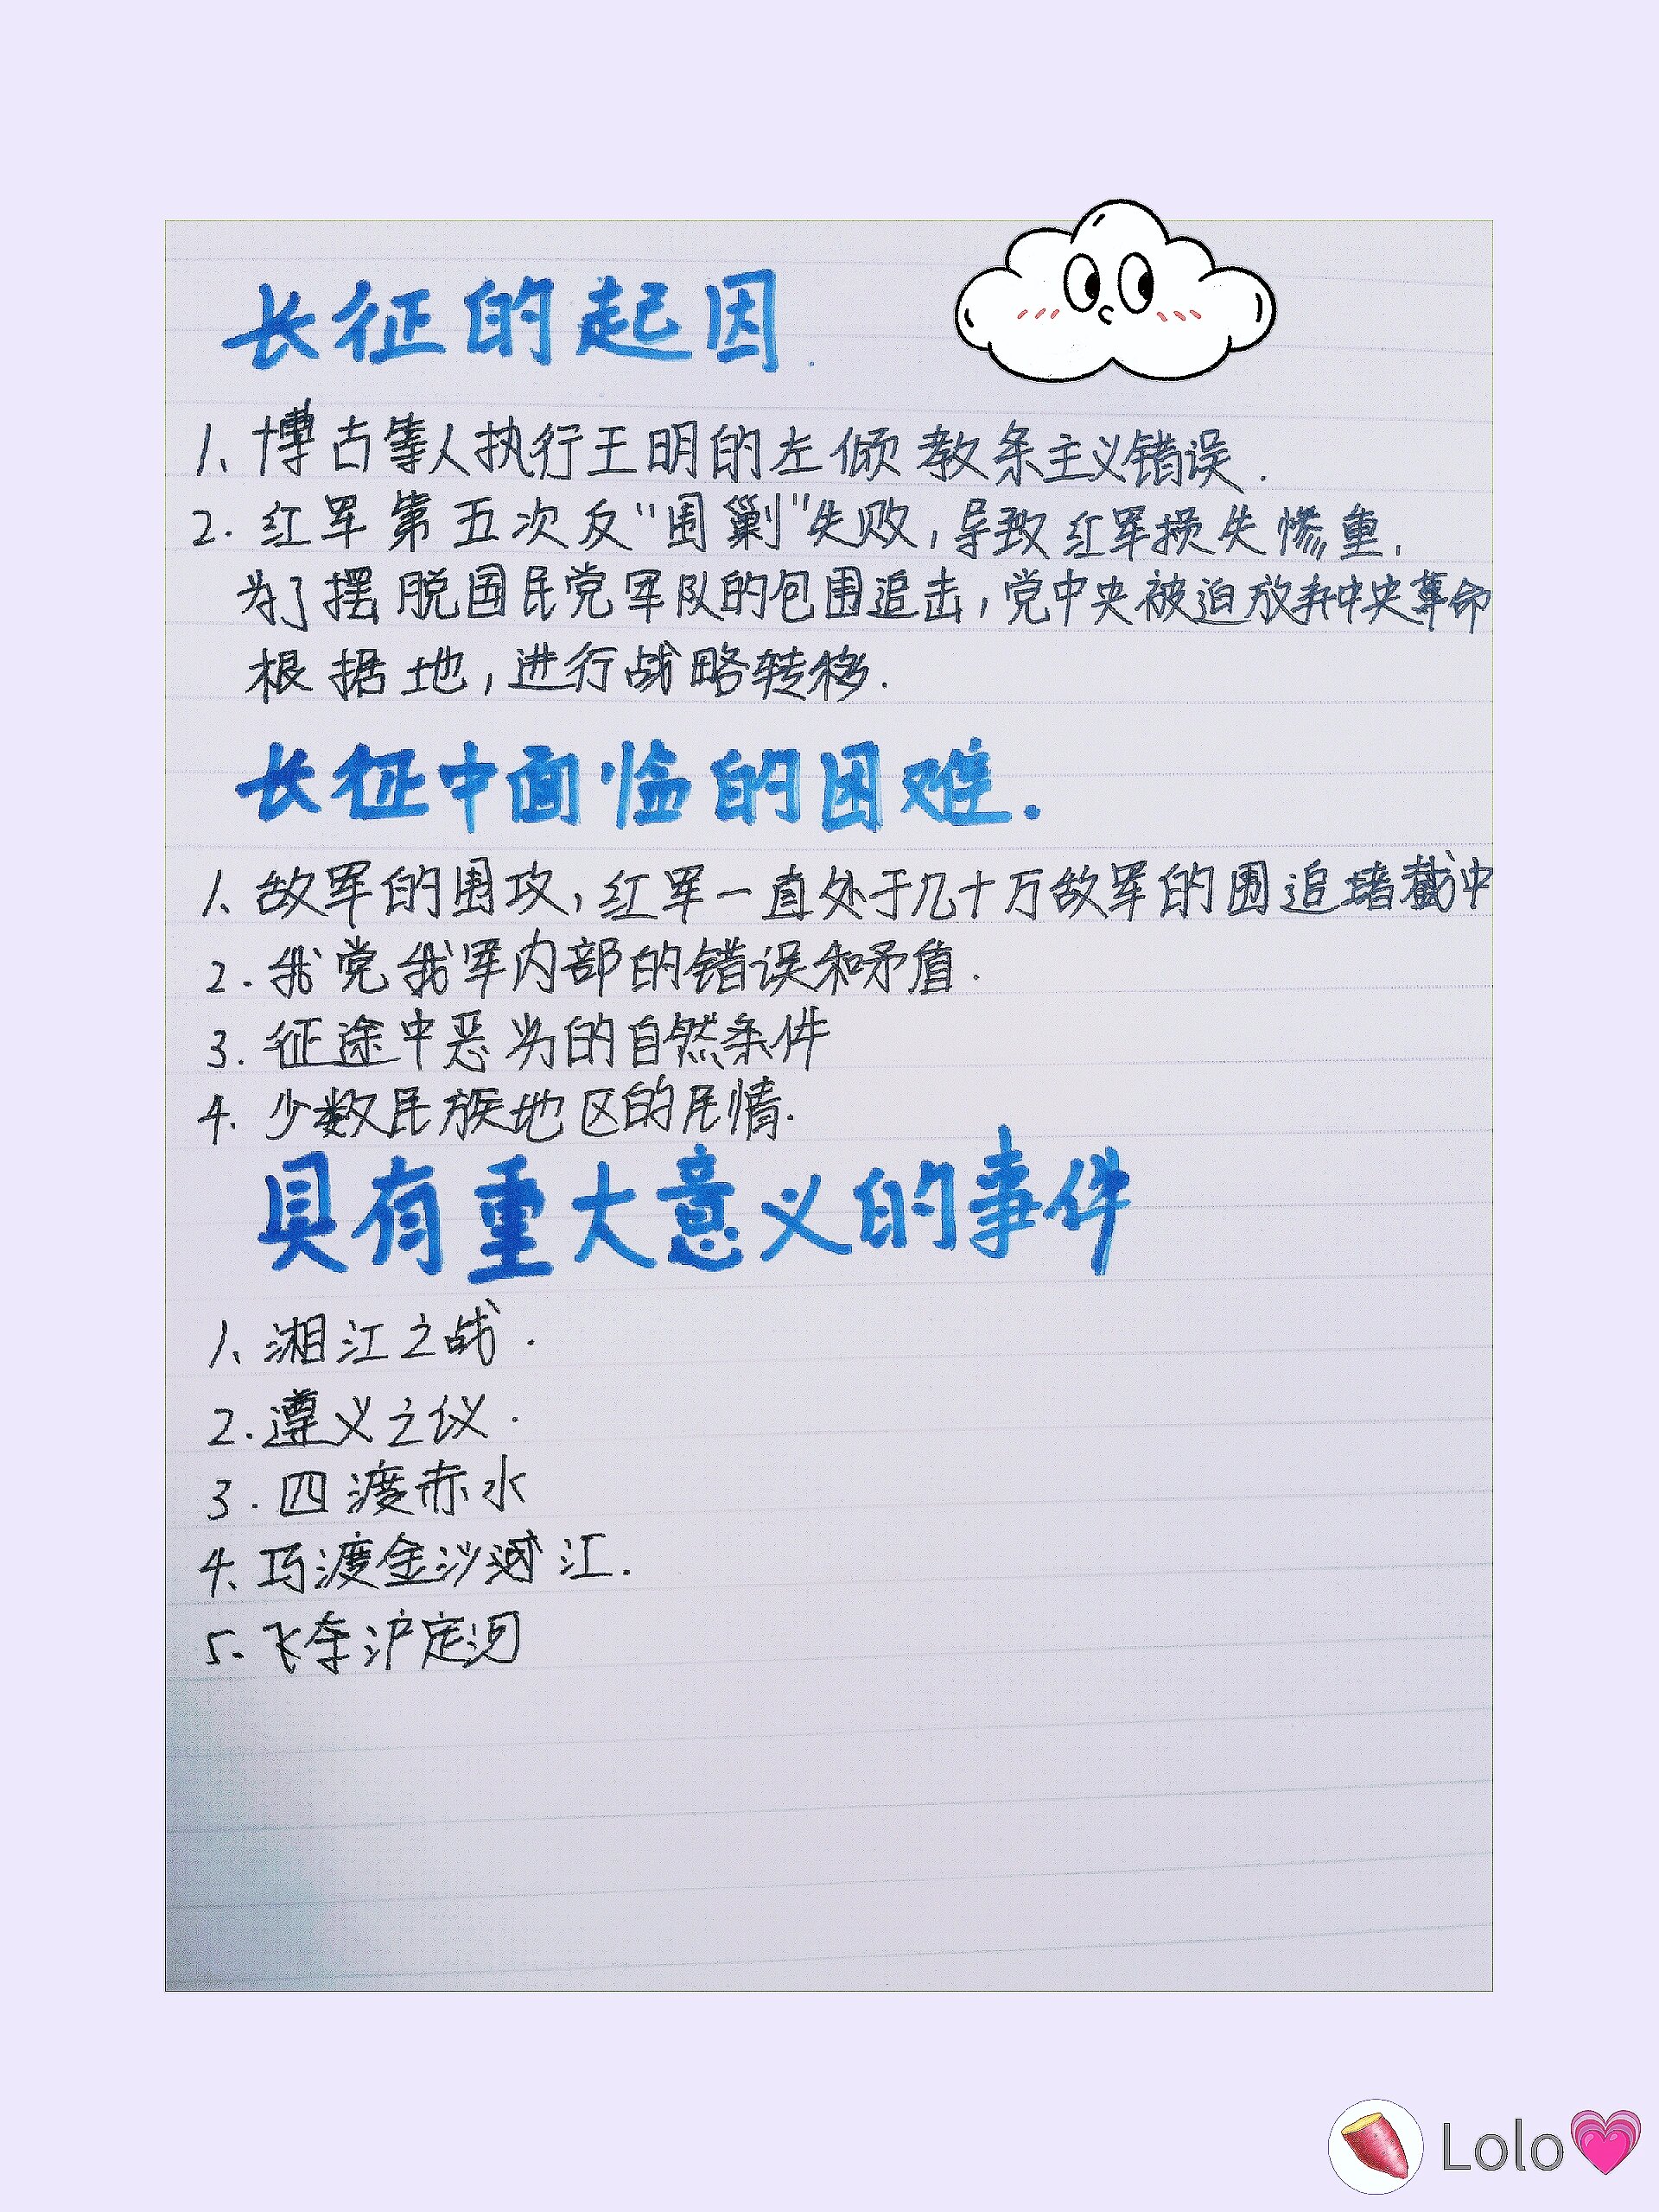 长征的起因.
1、博古等人执行王明的左倾教条主义错误.
2.红军第五次反"围剿"失败,导致红军损失惨重.
为了摆脱国民党军队的包围追击,党中央被迫放弃中央革命
根据地,进行战略转移.
长征中面临的困难.
1、敌军的围攻,红军一直处于几十万敌军的围追堵截中
2.我党我军内部的错误和矛盾.
3.征途中恶劣的自然条件
4.少数民族地区的民情.
具有重大意义的事件
1、湘江之战.
2.遵义之仪.
3.四渡赤水
4、巧渡金沙江.
5.飞夺沪定
Lolo